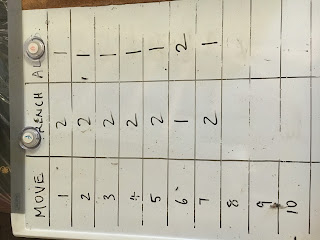 MOVE RENCH A
1 2 1
2 2 1
3 2 1
4 2 1
5 2 1
6 1 2
7 2 1
8
9
10